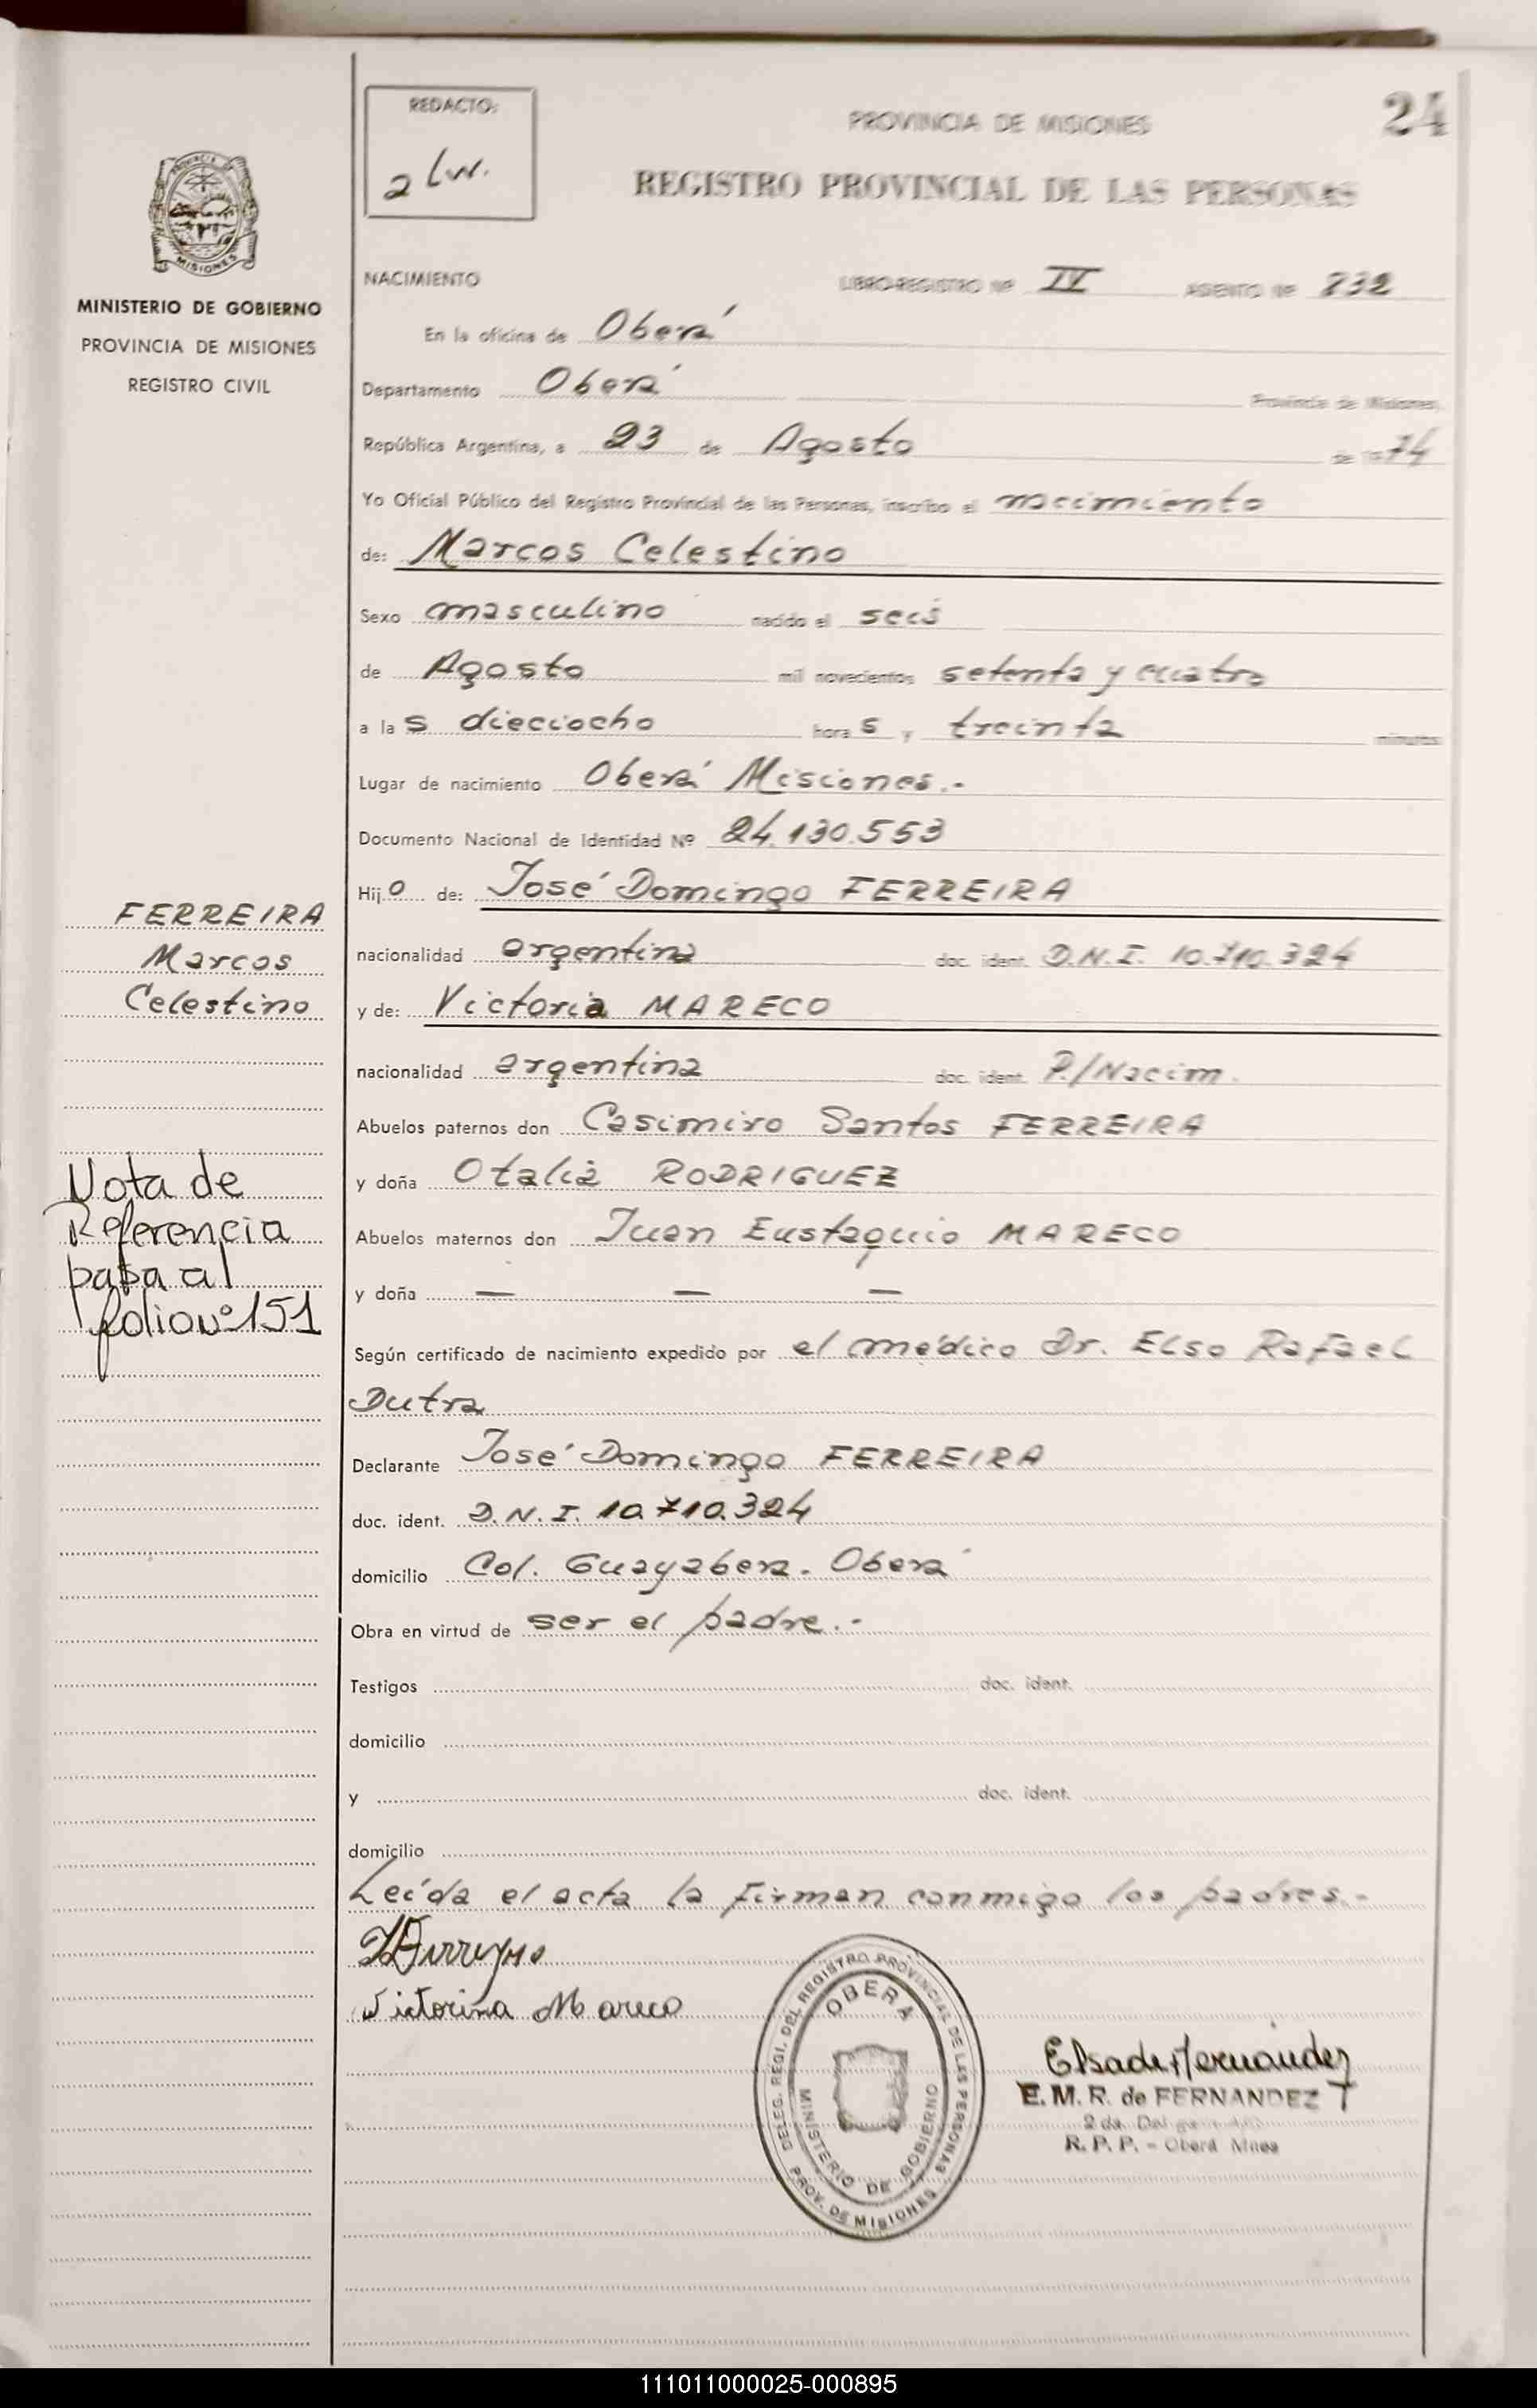 REDACTO:
2 Lw.
PROVINCIA DE MISIONES
24
REGISTRO PROVINCIAL DE LAS PERSONAS
PROVINCIA DE
MISIONES
MINISTERIO DE GOBIERNO
PROVINCIA DE MISIONES
REGISTRO CIVIL
NACIMIENTO LIBRO-REGISTRO Nº IV ASIENTO Nº 832
En la oficina de Oberá
Departamento Oberá Provincia de Misiones,
República Argentina, a 23 de Agosto de 1974
Yo Oficial Público del Registro Provincial de las Personas, inscribo el nacimiento
de: Marcos Celestino
Sexo masculino nacido el seis
de Agosto mil novecientos setenta y cuatro
a las dieciocho horas y treinta minutos
Lugar de nacimiento Oberá Misiones.-
Documento Nacional de Identidad Nº 24.130.553
Hijo de: José Domingo FERREIRA
nacionalidad argentina doc. ident. D.N.I. 10.710.324
y de: Victoria MARECO
nacionalidad argentina doc. ident. P./Nacim.
Abuelos paternos don Casimiro Santos FERREIRA
y doña Otalia RODRIGUEZ
Abuelos maternos don Juan Eustaquio MARECO
y doña — — —
Según certificado de nacimiento expedido por el médico Dr. Elso Rafael
Dutra
Declarante José Domingo FERREIRA
doc. ident. D.N.I. 10.710.324
domicilio Col. Guayabera. Oberá
Obra en virtud de ser el padre.-
Testigos doc. ident.
domicilio
y doc. ident.
domicilio
Leída el acta la firman conmigo los padres.-
Victorina Mareco
FERREIRA
Marcos
Celestino
Nota de
Referencia
pasa al
folio nº 151
DELEG. REGI. DEL REGISTRO PROVINCIAL DE LAS PERSONAS
OBERA
MINISTERIO DE GOBIERNO
PROV. DE MISIONES
Elsa de Fernandez
E. M. R. de FERNANDEZ T
R. P. P. - Oberá Mnes
111011000025-000895